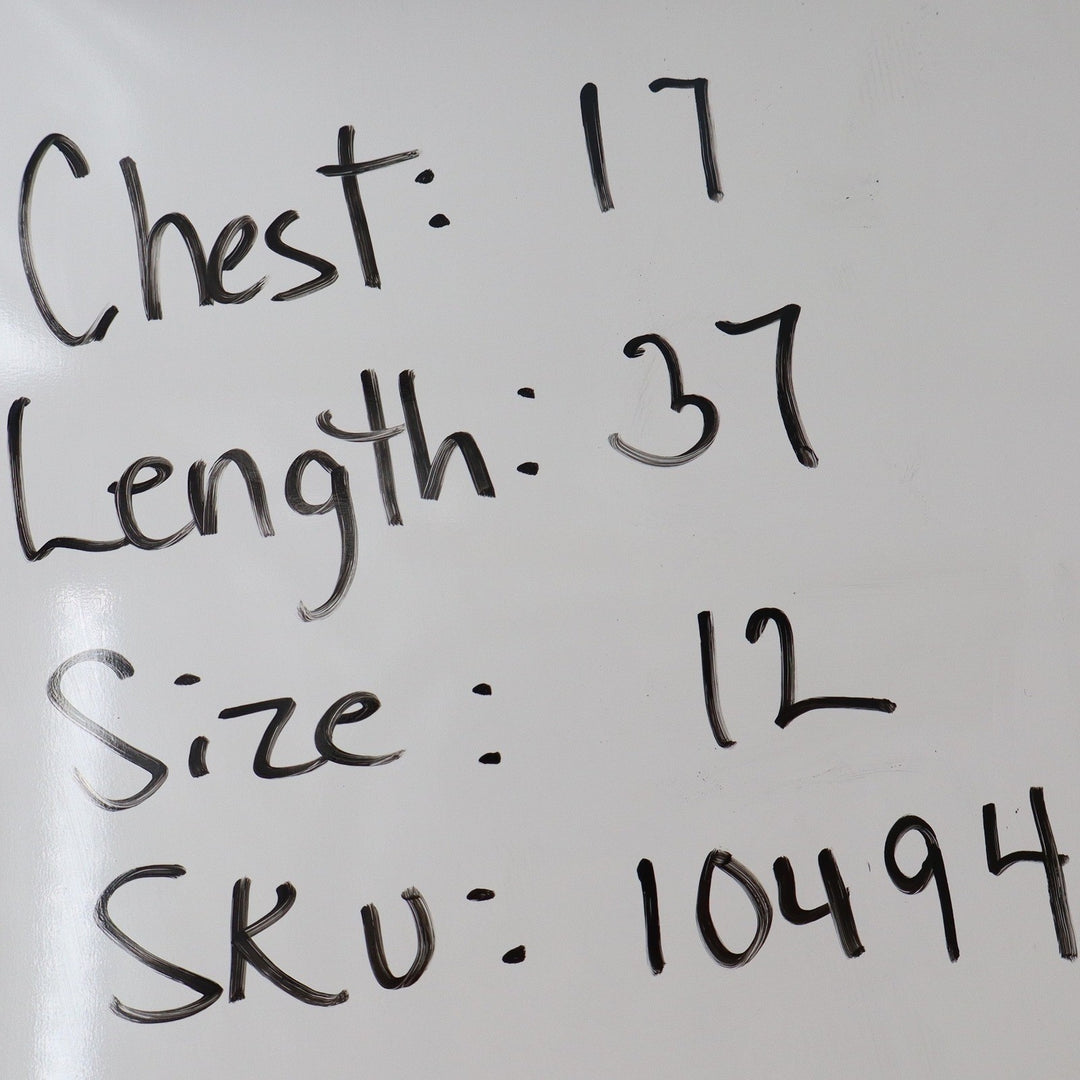 Chest: 17
Length: 37
Size: 12
SKU: 10494